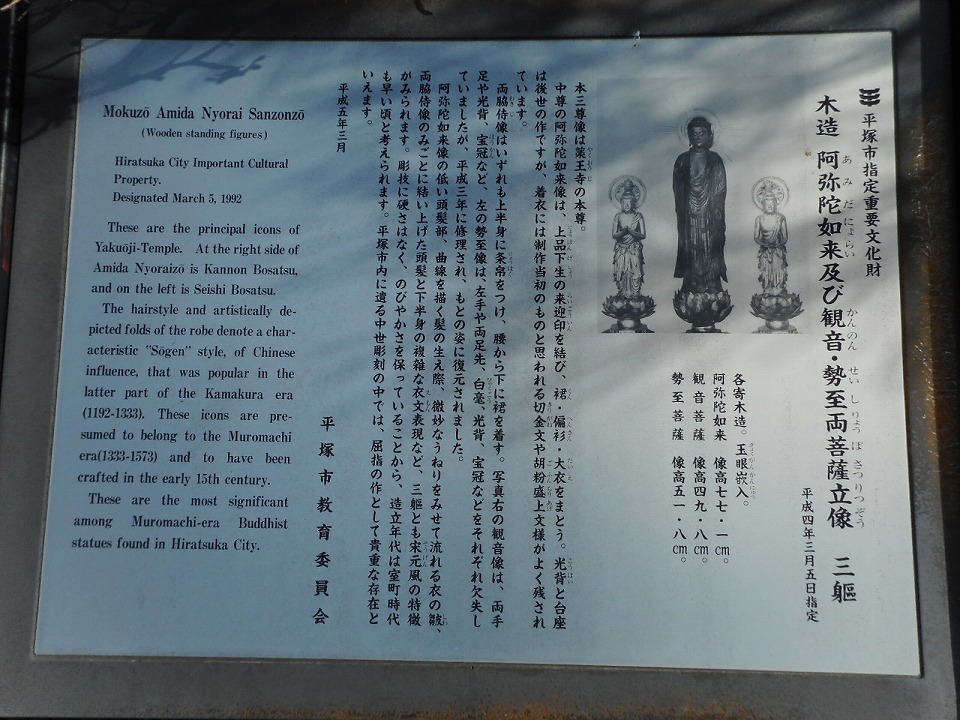 平塚市指定重要文化財
木造 阿弥陀如来及び観音・勢至両菩薩立像 三軀
平成四年三月五日指定
各寄木造。玉眼嵌入。
阿弥陀如来 像高七七・一cm。
観音菩薩 像高四九・八cm。
勢至菩薩 像高五一・八cm。
本三尊像は薬王寺の本尊。
中尊の阿弥陀如来像は、上品下生の来迎印を結び、裙・偏衫・大衣をまとう。光背と台座
は後世の作ですが、着衣には制作当初のものと思われる切金文や胡粉盛上文様がよく残され
ています。
両脇侍像はいずれも上半身に条帛をつけ、腰から下に裙を着す。写真右の観音像は、両手
足や光背、宝冠など、左の勢至像は左手や両足先、白毫、光背、宝冠などをそれぞれ欠失し
ていましたが、平成三年に修理され、もとの姿に復元されました。
阿弥陀如来像の低い頭髪部、曲線を描く髪の生え際、微妙なうねりをみせて流れる衣の皺、
両脇侍像のみごとに結い上げた頭髪と下半身の複雑な衣文表現など、三軀とも宋元風の特徴
がみられます。彫技に硬さはなく、のびやかさを保っていることから、造立年代は室町時代
も早い頃と考えられます。平塚市内に遺る中世彫刻の中では、屈指の作として貴重な存在と
いえます。
平成五年三月
平塚市教育委員会
Mokuzō Amida Nyorai Sanzonzō
(Wooden standing figures)
Hiratsuka City Important Cultural
Property.
Designated March 5, 1992
These are the principal icons of
Yakuōji-Temple. At the right side of
Amida Nyoraizō is Kannon Bosatsu,
and on the left is Seishi Bosatsu.
The hairstyle and artistically de-
picted folds of the robe denote a char-
acteristic "Sōgen" style, of Chinese
influence, that was popular in the
latter part of the Kamakura era
(1192-1333). These icons are pre-
sumed to belong to the Muromachi
era(1333-1573) and to have been
crafted in the early 15th century.
These are the most significant
among Muromachi-era Buddhist
statues found in Hiratsuka City.